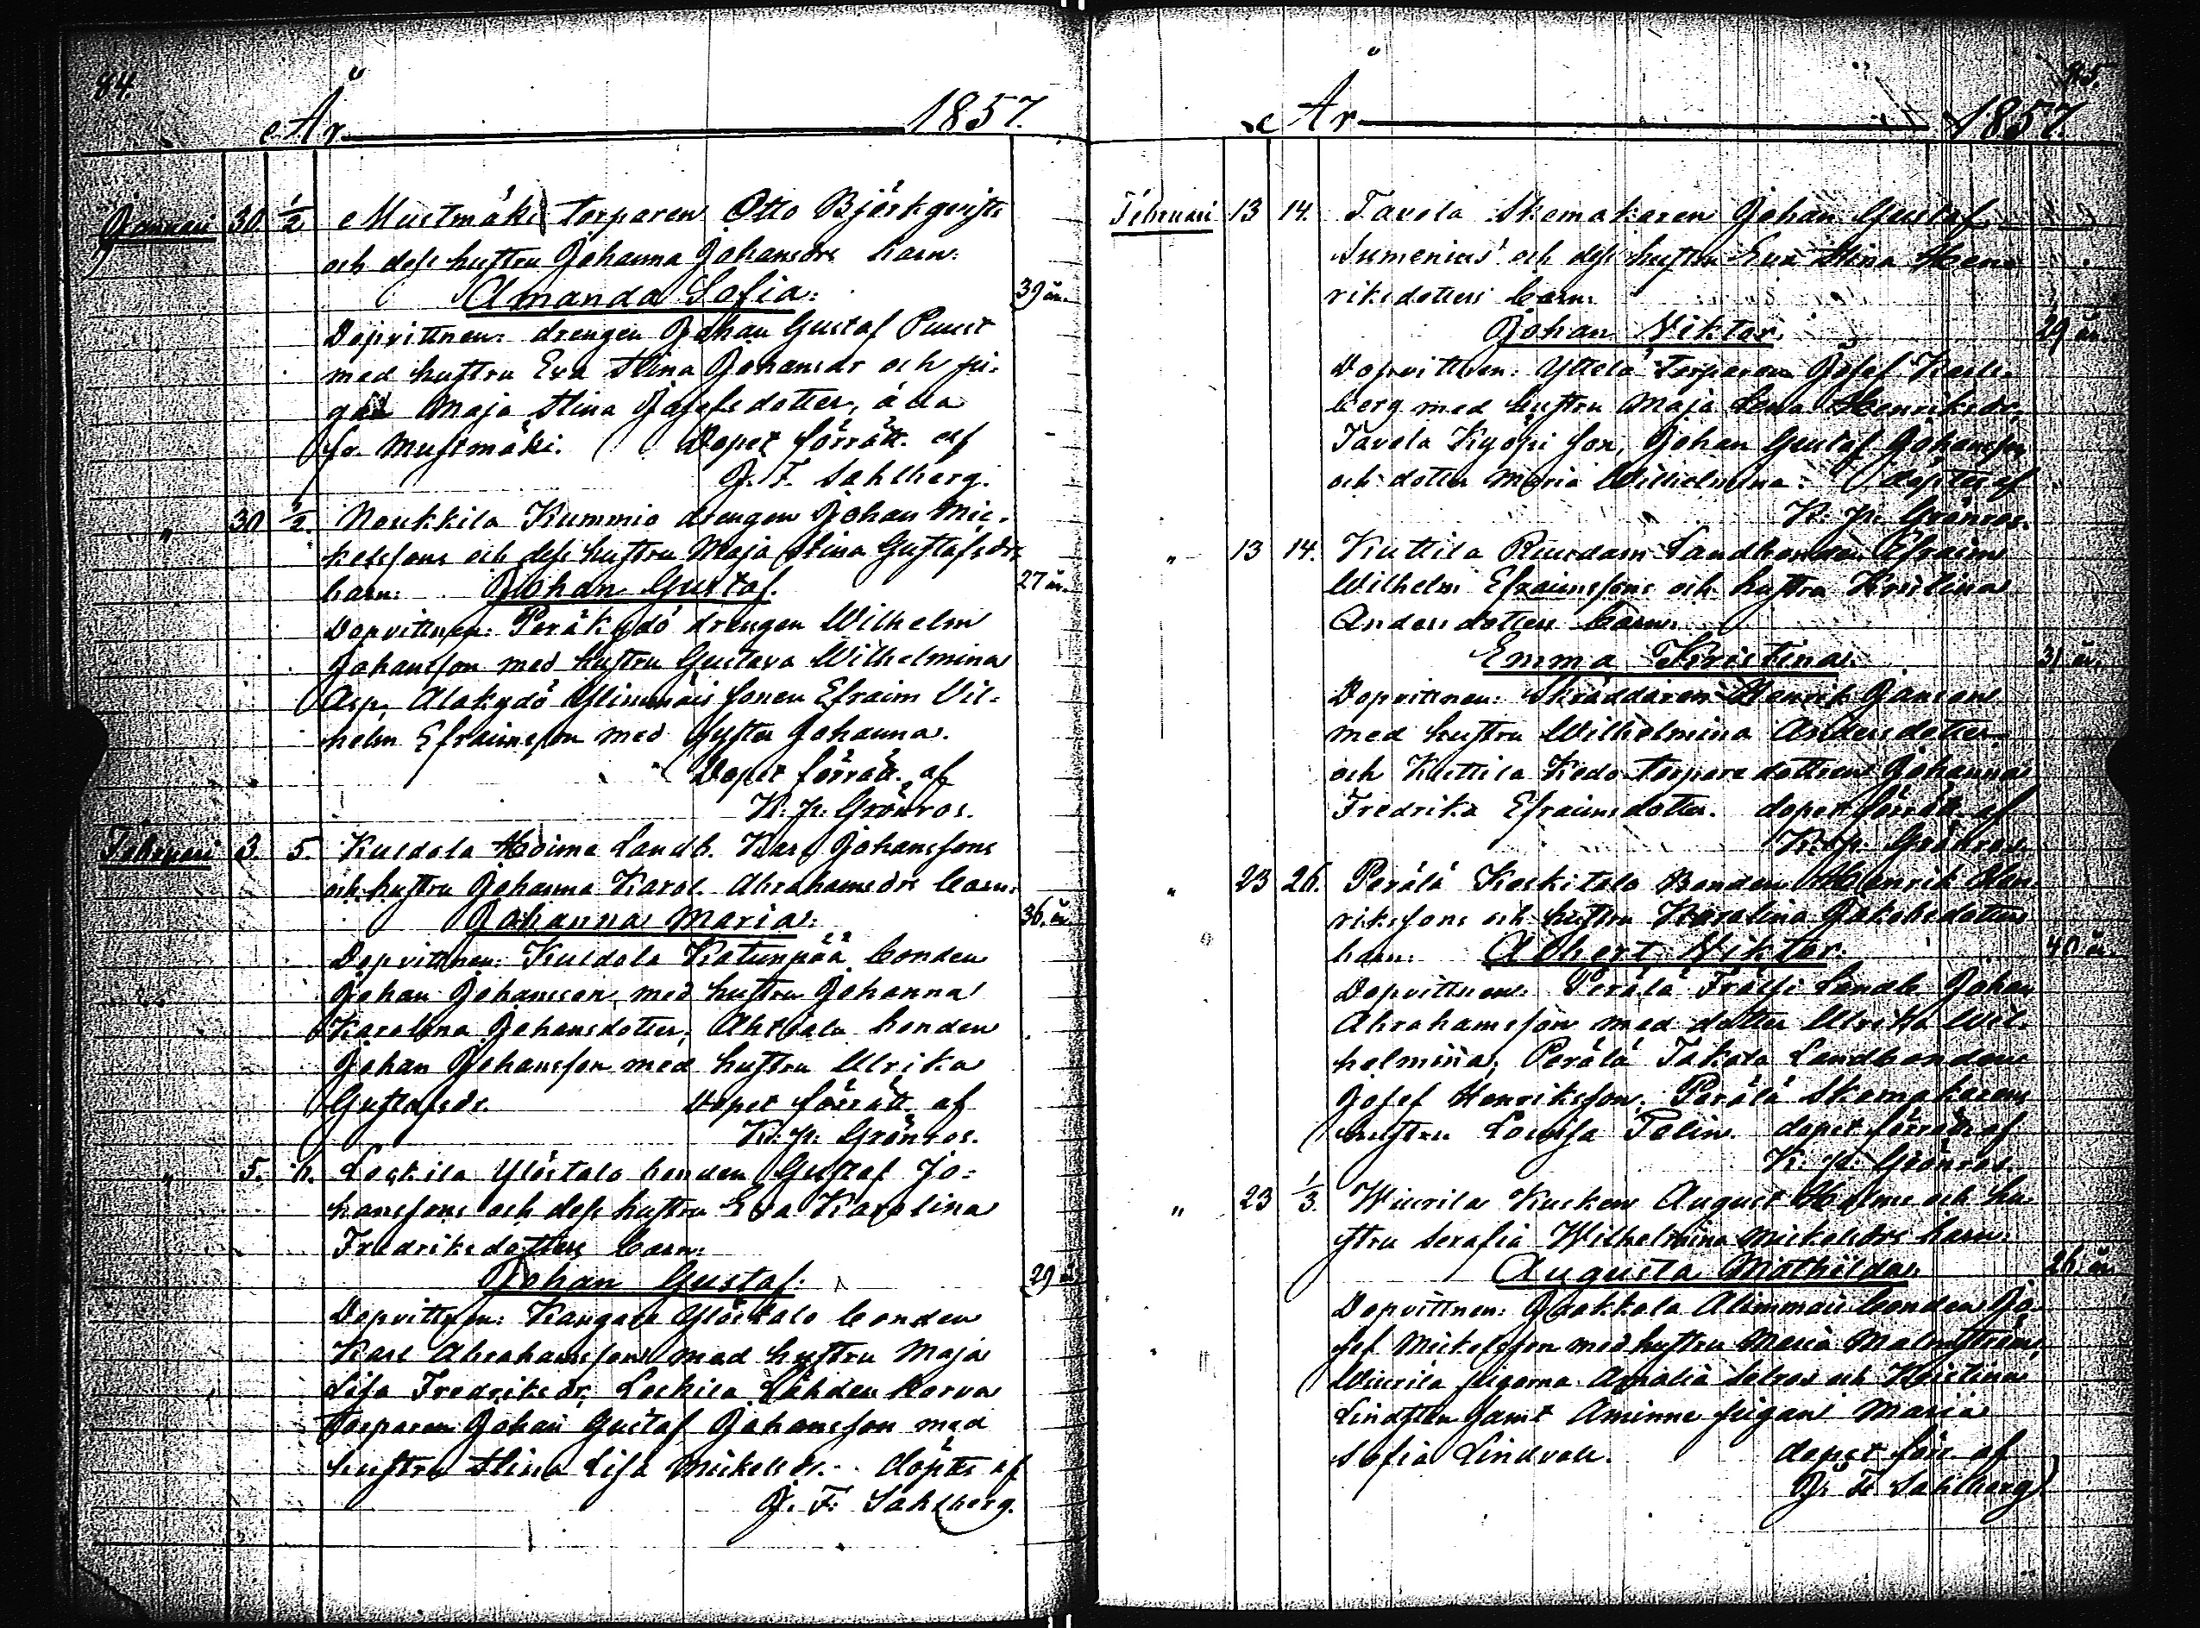 84.
År 1857.
Januari 30. 1/2 Mustmäki torparen Otto Björkqvists
och dess hustru Johanna Johansdrs barn:
Amanda Sofia: 39 år.
Dopvittnen: drengen Johan Gustaf Puust
med hustru Eva Stina Johansdr och pi-
gan Maja Stina Josefsdotter, alla
fr. Mustmäki. Dopet förrätt. af
J. F. Sahlberg.
" 30 1/2. Noukkila Kummio drengen Johan Mic-
kelssons och dess hustru Maja Stina Gustafsdrs
barn: Johan Gustaf. 27 år.
Dopvittnen: Peräkydö drengen Wilhelm
Johansson med hustru Gustava Wilhelmina
Asp, Alakydö Ylimmäis sonen Efraim Vil-
helm Efraimsson med syster Johanna.
Dopet förrätt. af
K. p. Grönros.
Februari 3. 5. Kusdola Hoima Landb. Karl Johanssons
och hustru Johanna Karol. Abrahamsdrs barn:
Johanna Maria: 36 år
Dopvittnen: Kusdola Katunpää bonden
Johan Johansson med hustru Johanna
Karolina Johansdotter, bonden
Johan Johansson med hustru Ulrika
Gustafsdr. Dopet förrätt. af
K. p. Grönros.
" 5. 6. Leskilä Ylöstalo bonden Gustaf Jo-
hanssons och dess hustru Eva Karolina
Fredriksdotters barn:
Johan Gustaf: 29 år
Dopvittnen: Kangare Ylöstalo bonden
Karl Abrahamsson med hustru Maja
Lisa Fredriksdr, Leskilä Lähden Korva
torparen Johan Gustaf Johansson med
hustru Stina Lisa Mickelsdr. döptes af
J. F. Sahlberg.
85.
År 1857.
Februari 13 14. Tavola Skomakaren Johan Gustaf
Sumenius' och dess hustru Eva Stina Hen-
riksdotters barn:
Johan Viktor. 29 år.
Dopvittnen: Yttelä torparen Josef Karl-
berg med hustru Maja Lena Henriksdr,
Tavola Kyöpi son, Johan Gustaf Johansson
och dotter Maria Wilhelmina. döptes af
K. p. Grönros.
" 13 14. Kuttila Ruusdam Landbonden Efraim
Wilhelm Efraimssons och hustru Kristina
Andersdotters barn:
Emma Kristina. 31 år.
Dopvittnen: Skräddaren Henrik Janson
med hustru Wilhelmina Andersdotter
och Kuttila Kedo torpare dottren Johanna
Fredrika Efraimsdotter. dopet förrätt. af
K. p. Grönros.
" 23 26. Perälä Keskitalo Bonden Henrik Hen-
rikssons och hustru Karolina Jakobsdotters
barn: Albert Viktor. 40 år.
Dopvittnen: Perälä Frälsi Landb. Johan
Abrahamsson med dotter Ulrika Wil-
helmina, Perälä Takala Landbonden
Josef Henriksson, Perälä Skomakarens
hustru Lovisa Polin. dopet förrätt. af
K. p. Grönros.
" 23 1/3. Wiurila Kusken August Holms och hu-
stru Serafia Wilhelmina Mickelsdrs barn:
Augusta Mathilda. 26 år
Dopvittnen: Joakkola Alimmais bonden Jo-
sef Mickelsson med hustru Maria Malmström,
Wiurila pigorna Amalia Selros och Kristina
Lindsten samt Aminne pigan Maria
Sofia Lindvall. dopet förr. af
J. F. Sahlberg